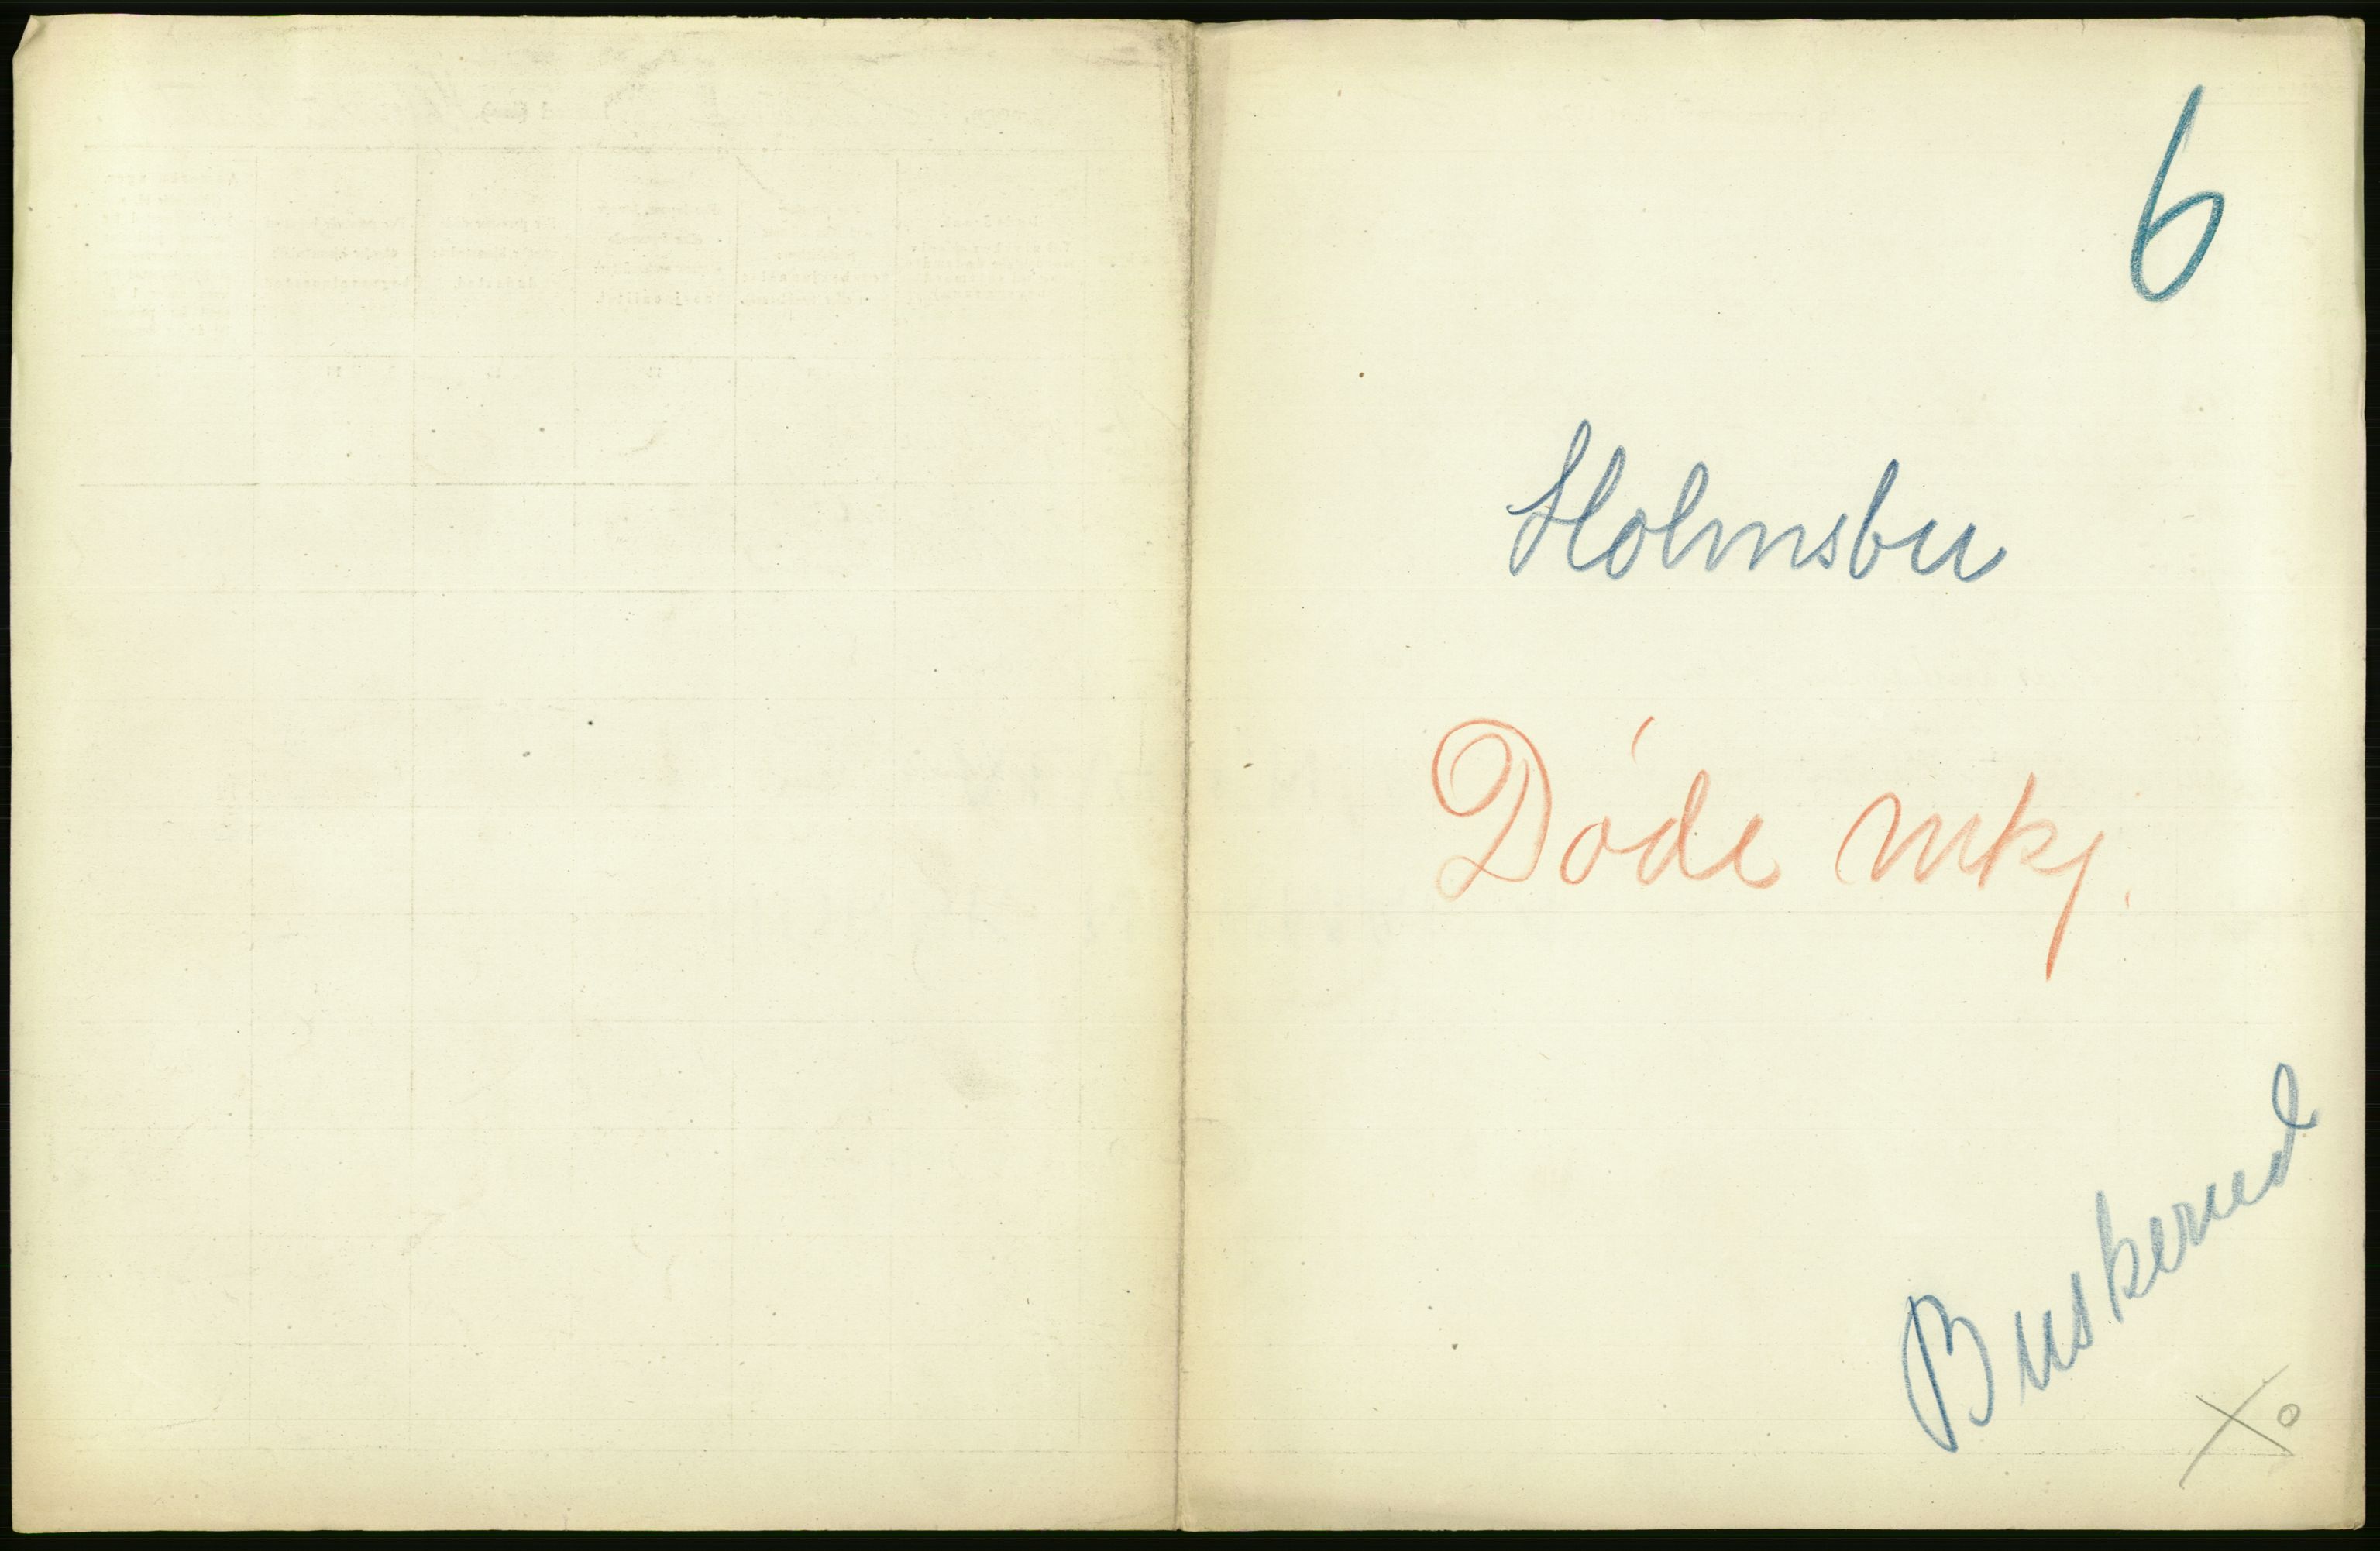 6
Holmsbu
Døde mkj.
Buskerud
X o